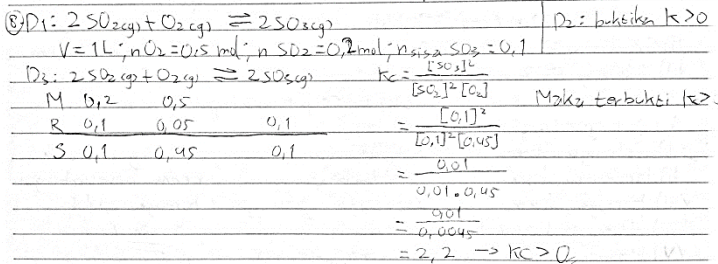 ⑧ D1: 2 SO2(g) + O2(g) ⇌ 2 SO3(g)
V = 1L ; n O2 = 0,5 mol ; n SO2 = 0,2 mol ; n sisa SO3 = 0,1
D2: buktikan k > 0
D3: 2 SO2(g) + O2(g) ⇌ 2 SO3(g)
M 0,2 0,5
R 0,1 0,05 0,1
S 0,1 0,45 0,1
Kc = [SO3]² / [SO2]² [O2]
= [0,1]² / [0,1]² [0,45]
= 0,01 / 0,01 . 0,45
= 0,01 / 0,0045
= 2,2 → Kc > 0
Maka terbukti k >